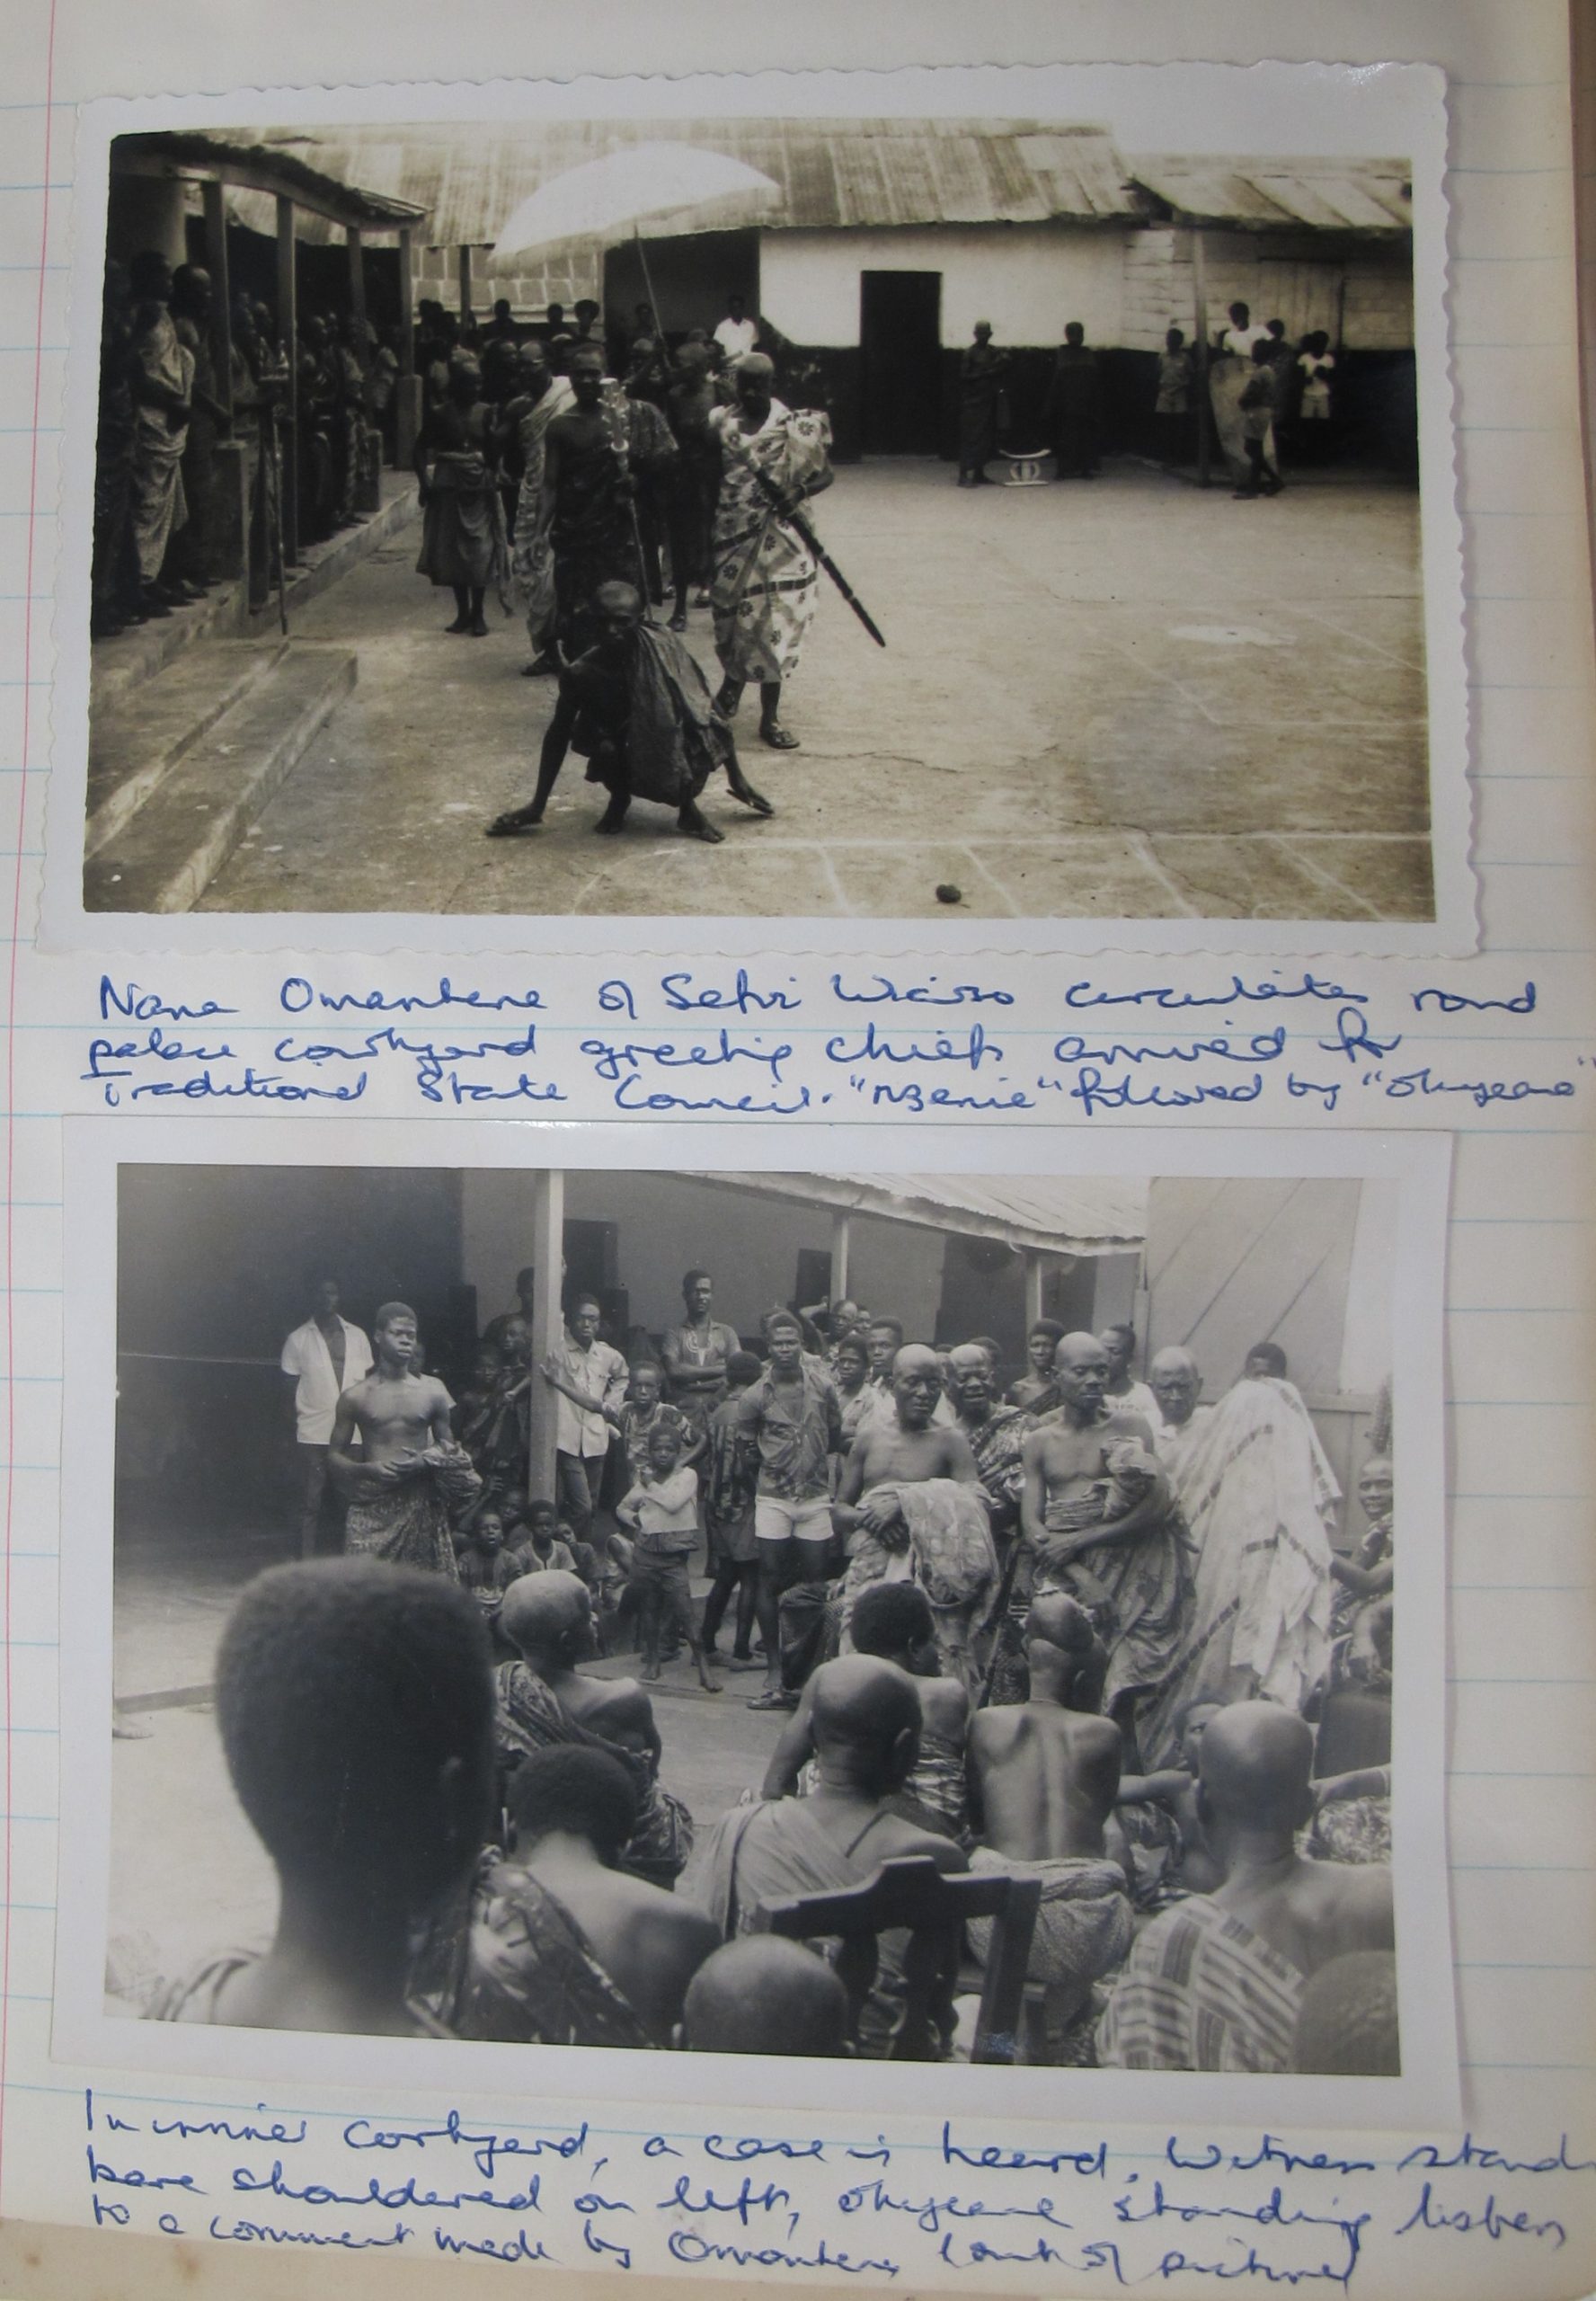 Nana Omanhene of Sefwi Wiawso circulates round
palace courtyard greeting chiefs arrived for
Traditional State Council. "nzenie" followed by "Okyeame"
In inner courtyard, a case is heard. Witness stands
bare shouldered on left, Okyeame standing listens
to a comment made by Omanhene (out of picture)